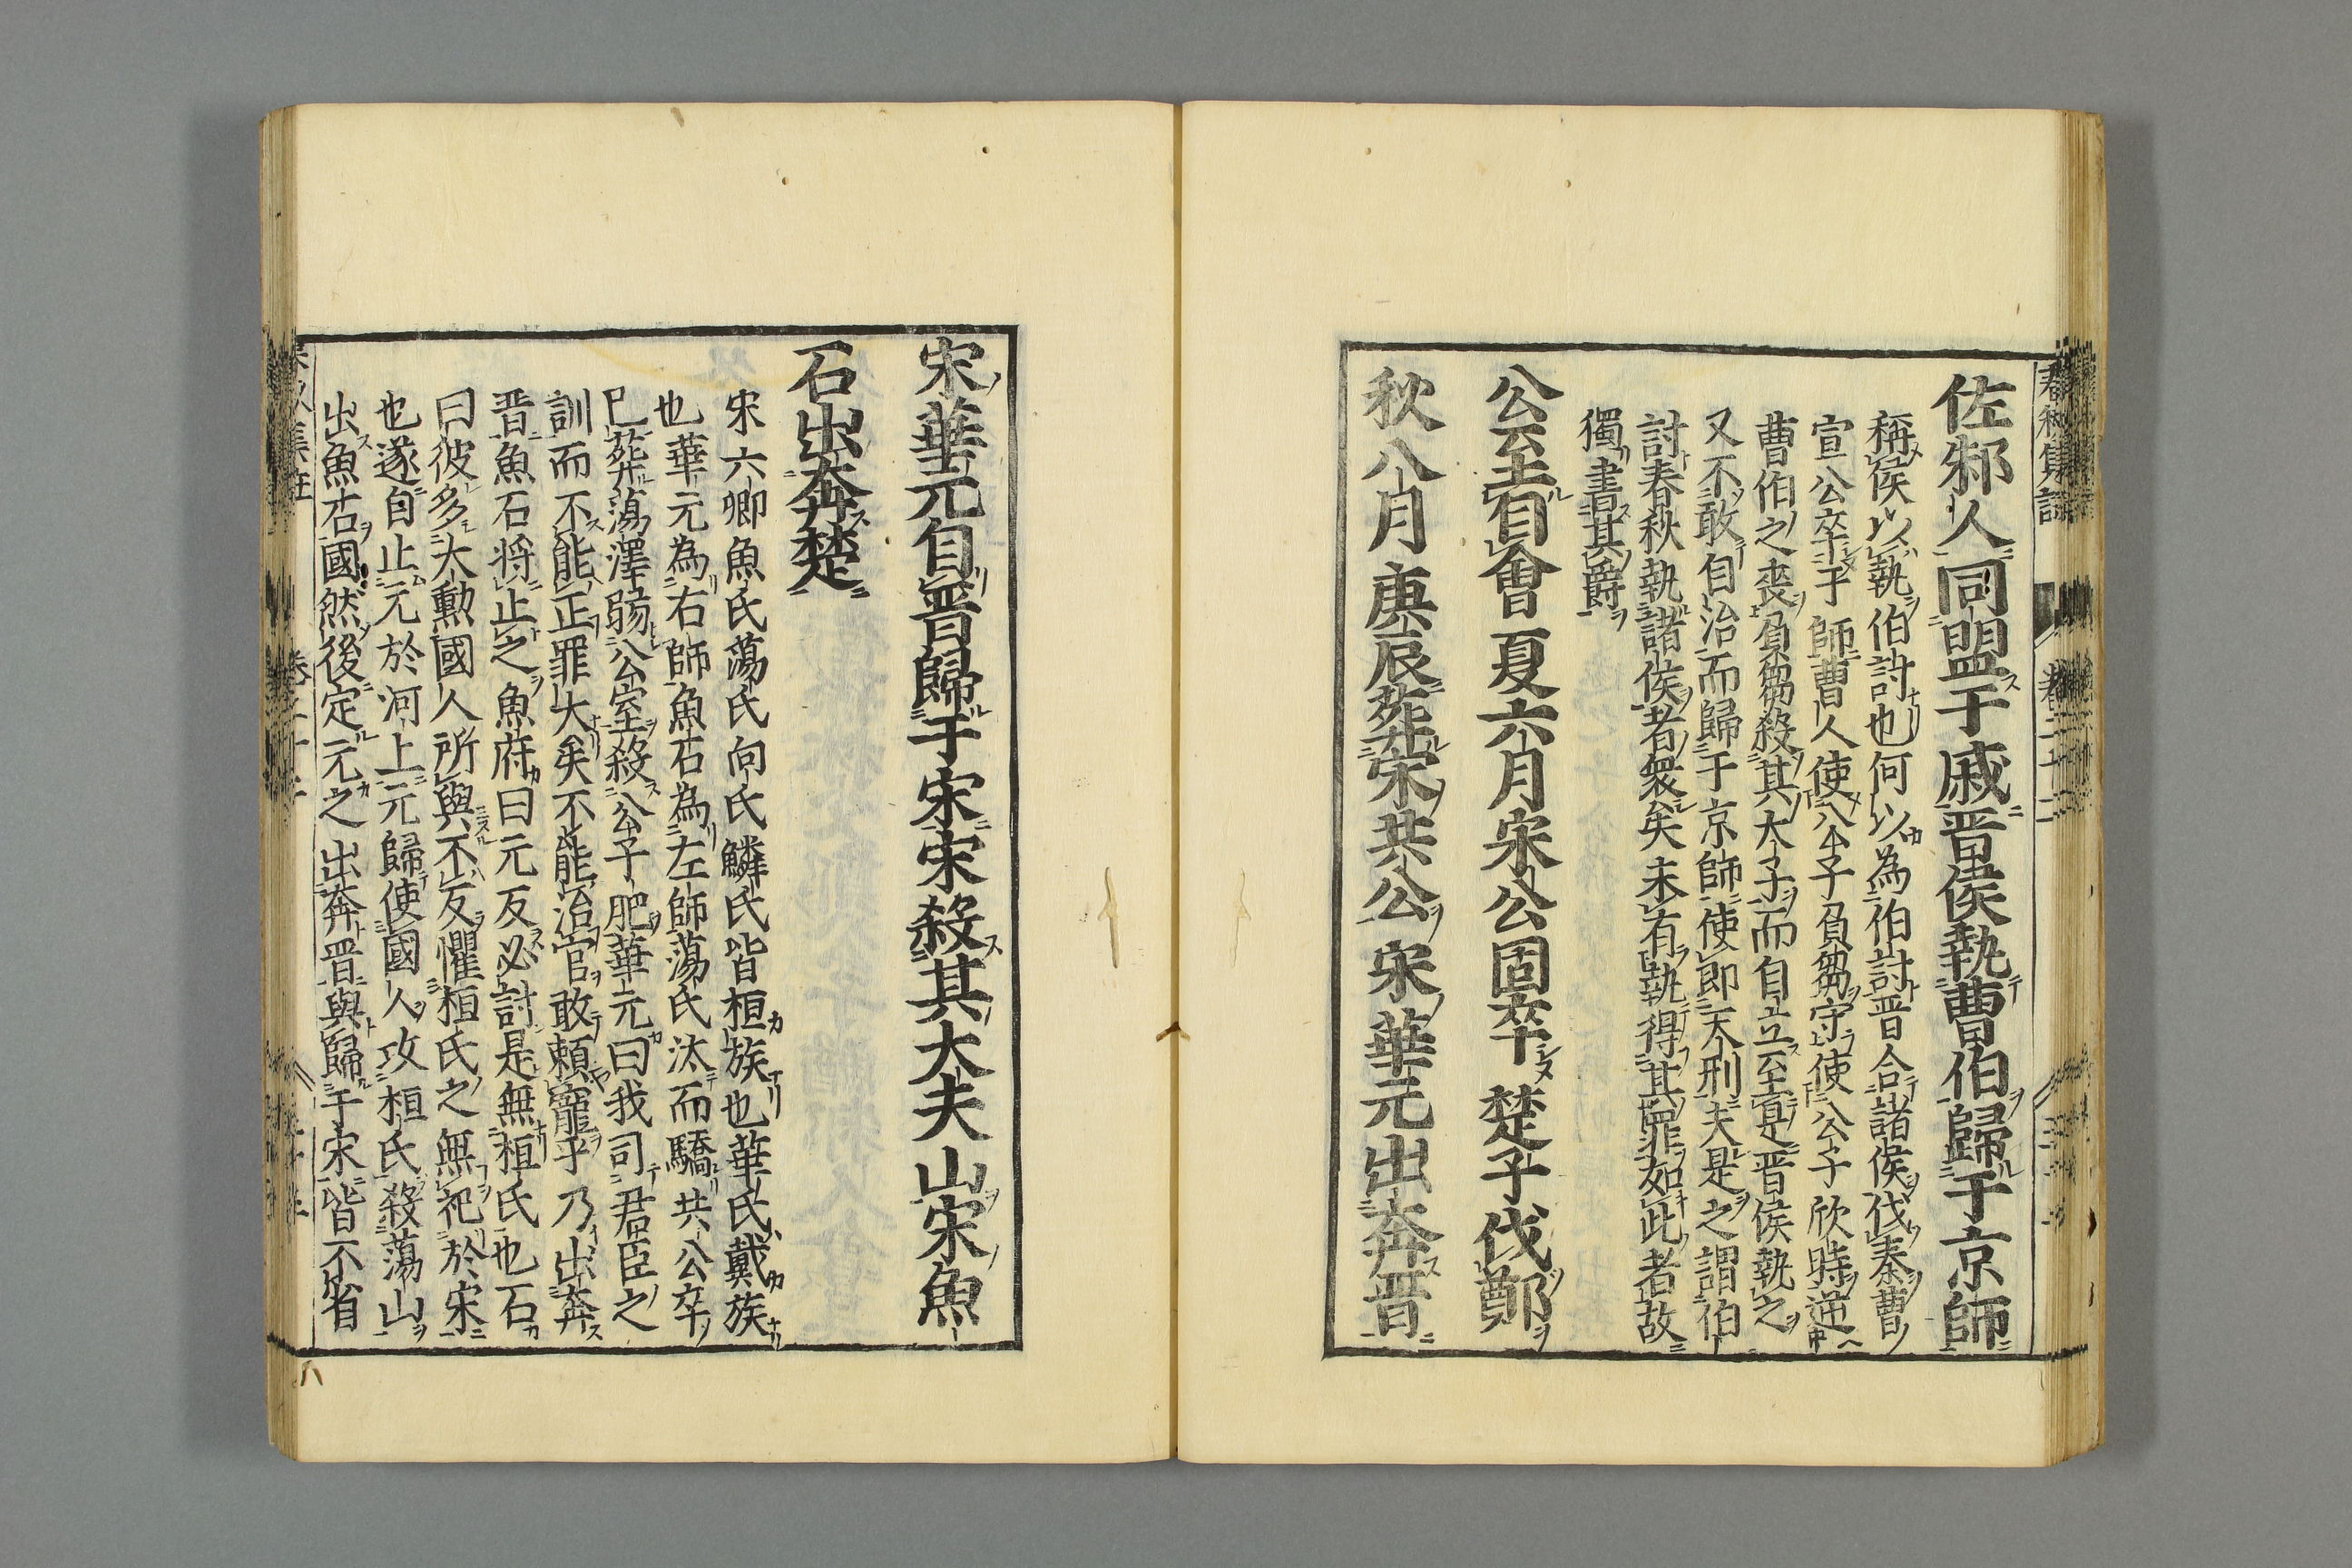 佐邾人同盟于戚晋侯執曹伯歸于京師
稱侯以執伯討也何以為伯討晋合諸侯伐秦曹
宣公卒于師曹人使公子負芻守使公子欣時逆
曹伯之喪負芻殺其大子而自立至是晋侯執之
又不敢自治而歸于京師使即天刑夫是之謂伯
討春秋執諸侯者衆矣未有執得其罪如此者故
獨書其爵
公至自會夏六月宋公固卒楚子伐鄭
秋八月庚辰葬宋共公宋華元出奔晋
宋華元自晋歸于宋宋殺其大夫山宋魚
石出奔楚
宋六卿魚氏蕩氏向氏鱗氏皆桓族也華氏戴族
也華元為右師魚石為左師蕩氏汰而驕共公卒
巳葬蕩澤弱公室殺公子肥華元曰我司君臣之
訓而不能正罪大矣不能治官敢賴寵乎乃出奔
晋魚石将止之魚府曰元反必討是無桓氏也石
曰彼多大勲國人所與不反懼桓氏之無祀於宋
也遂自止元於河上元歸使國人攻桓氏殺蕩山
出魚石國然後定元之出奔晋與歸于宋皆不省